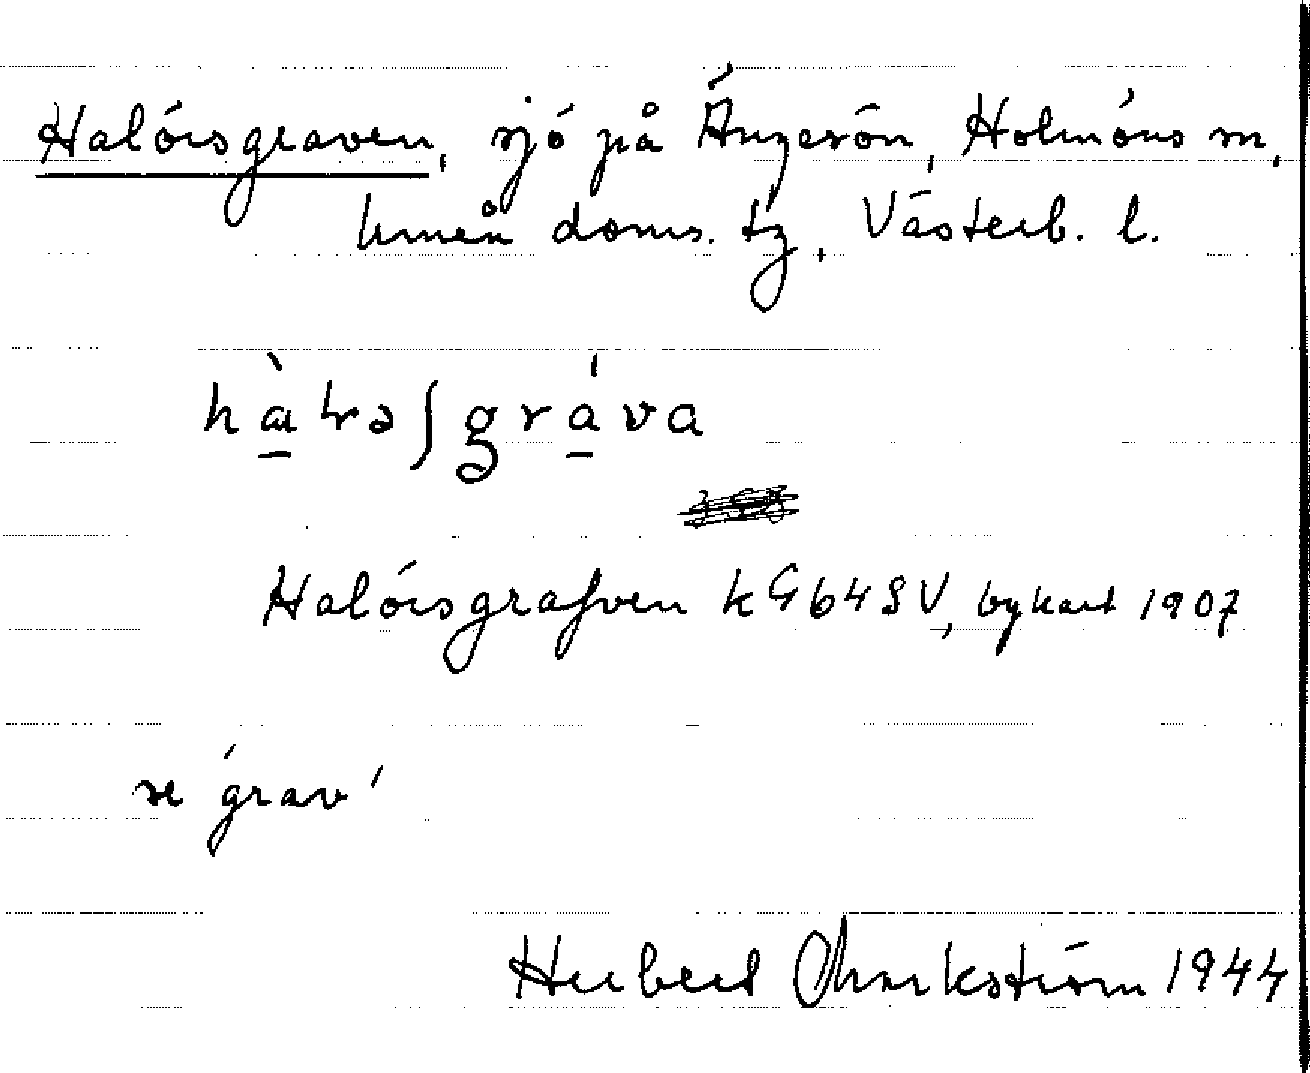 Halörsgraven, sjö på Ängesön, Holmöns sn,
Umeå doms. tg, Västerb. l.
Halörsgrafven kG64SV, bykart 1907
se 'grav'
Herbert Markström 1944